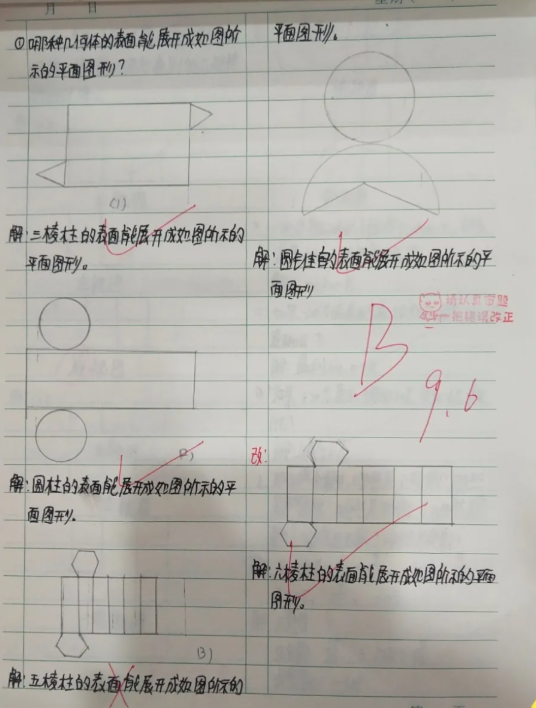 月 日
①哪种几何体的表面能展开成如图所
示的平面图形?
(1)
解:三棱柱的表面能展开成如图所示的
平面图形。
(2)
解:圆柱的表面能展开成如图所示的平
面图形。
(3)
解:五棱柱的表面能展开成如图所示的
平面图形。
解:圆 柱的表面能展开成如图所示的平
面图形
B
9.6
请认真审题
把错误改正
改:
解:六棱柱的表面能展开成如图所示的平面
图形。